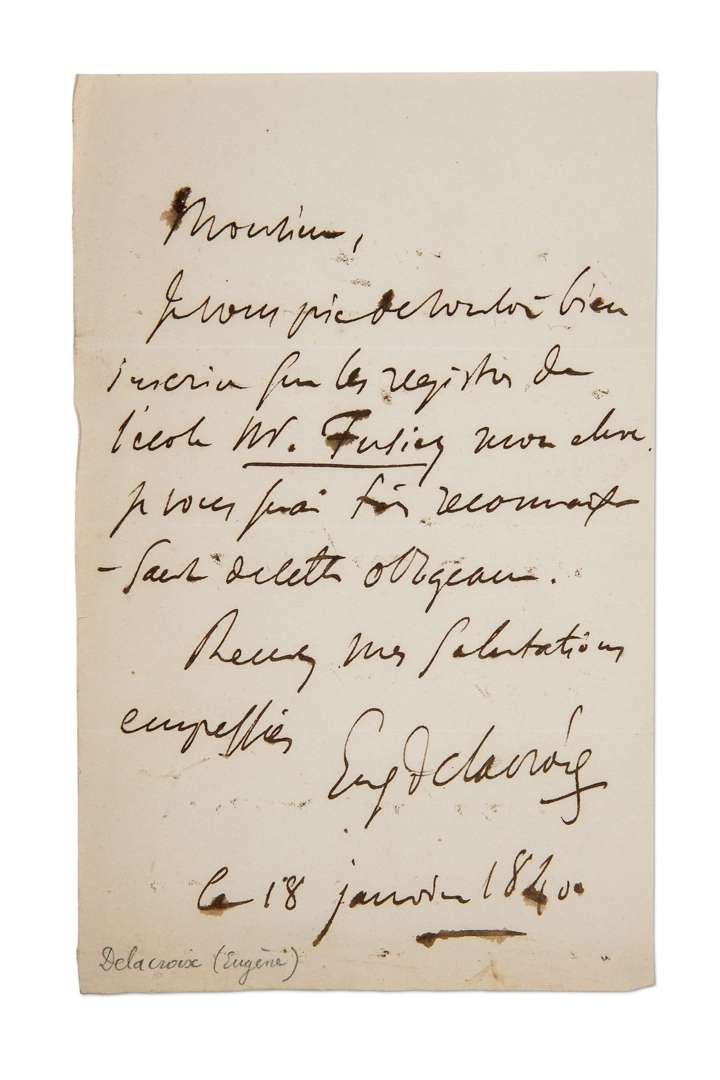 Monsieur,
Je vous prie de vouloir bien
inscrire sur les registres de
l'école Mr. mon eleve.
je vous serai très reconnais
-sant de cette obligeance.
Recevez mes salutations
empressées
Eug Delacroix
le 18 janvier 1840.
Delacroix (Eugène)